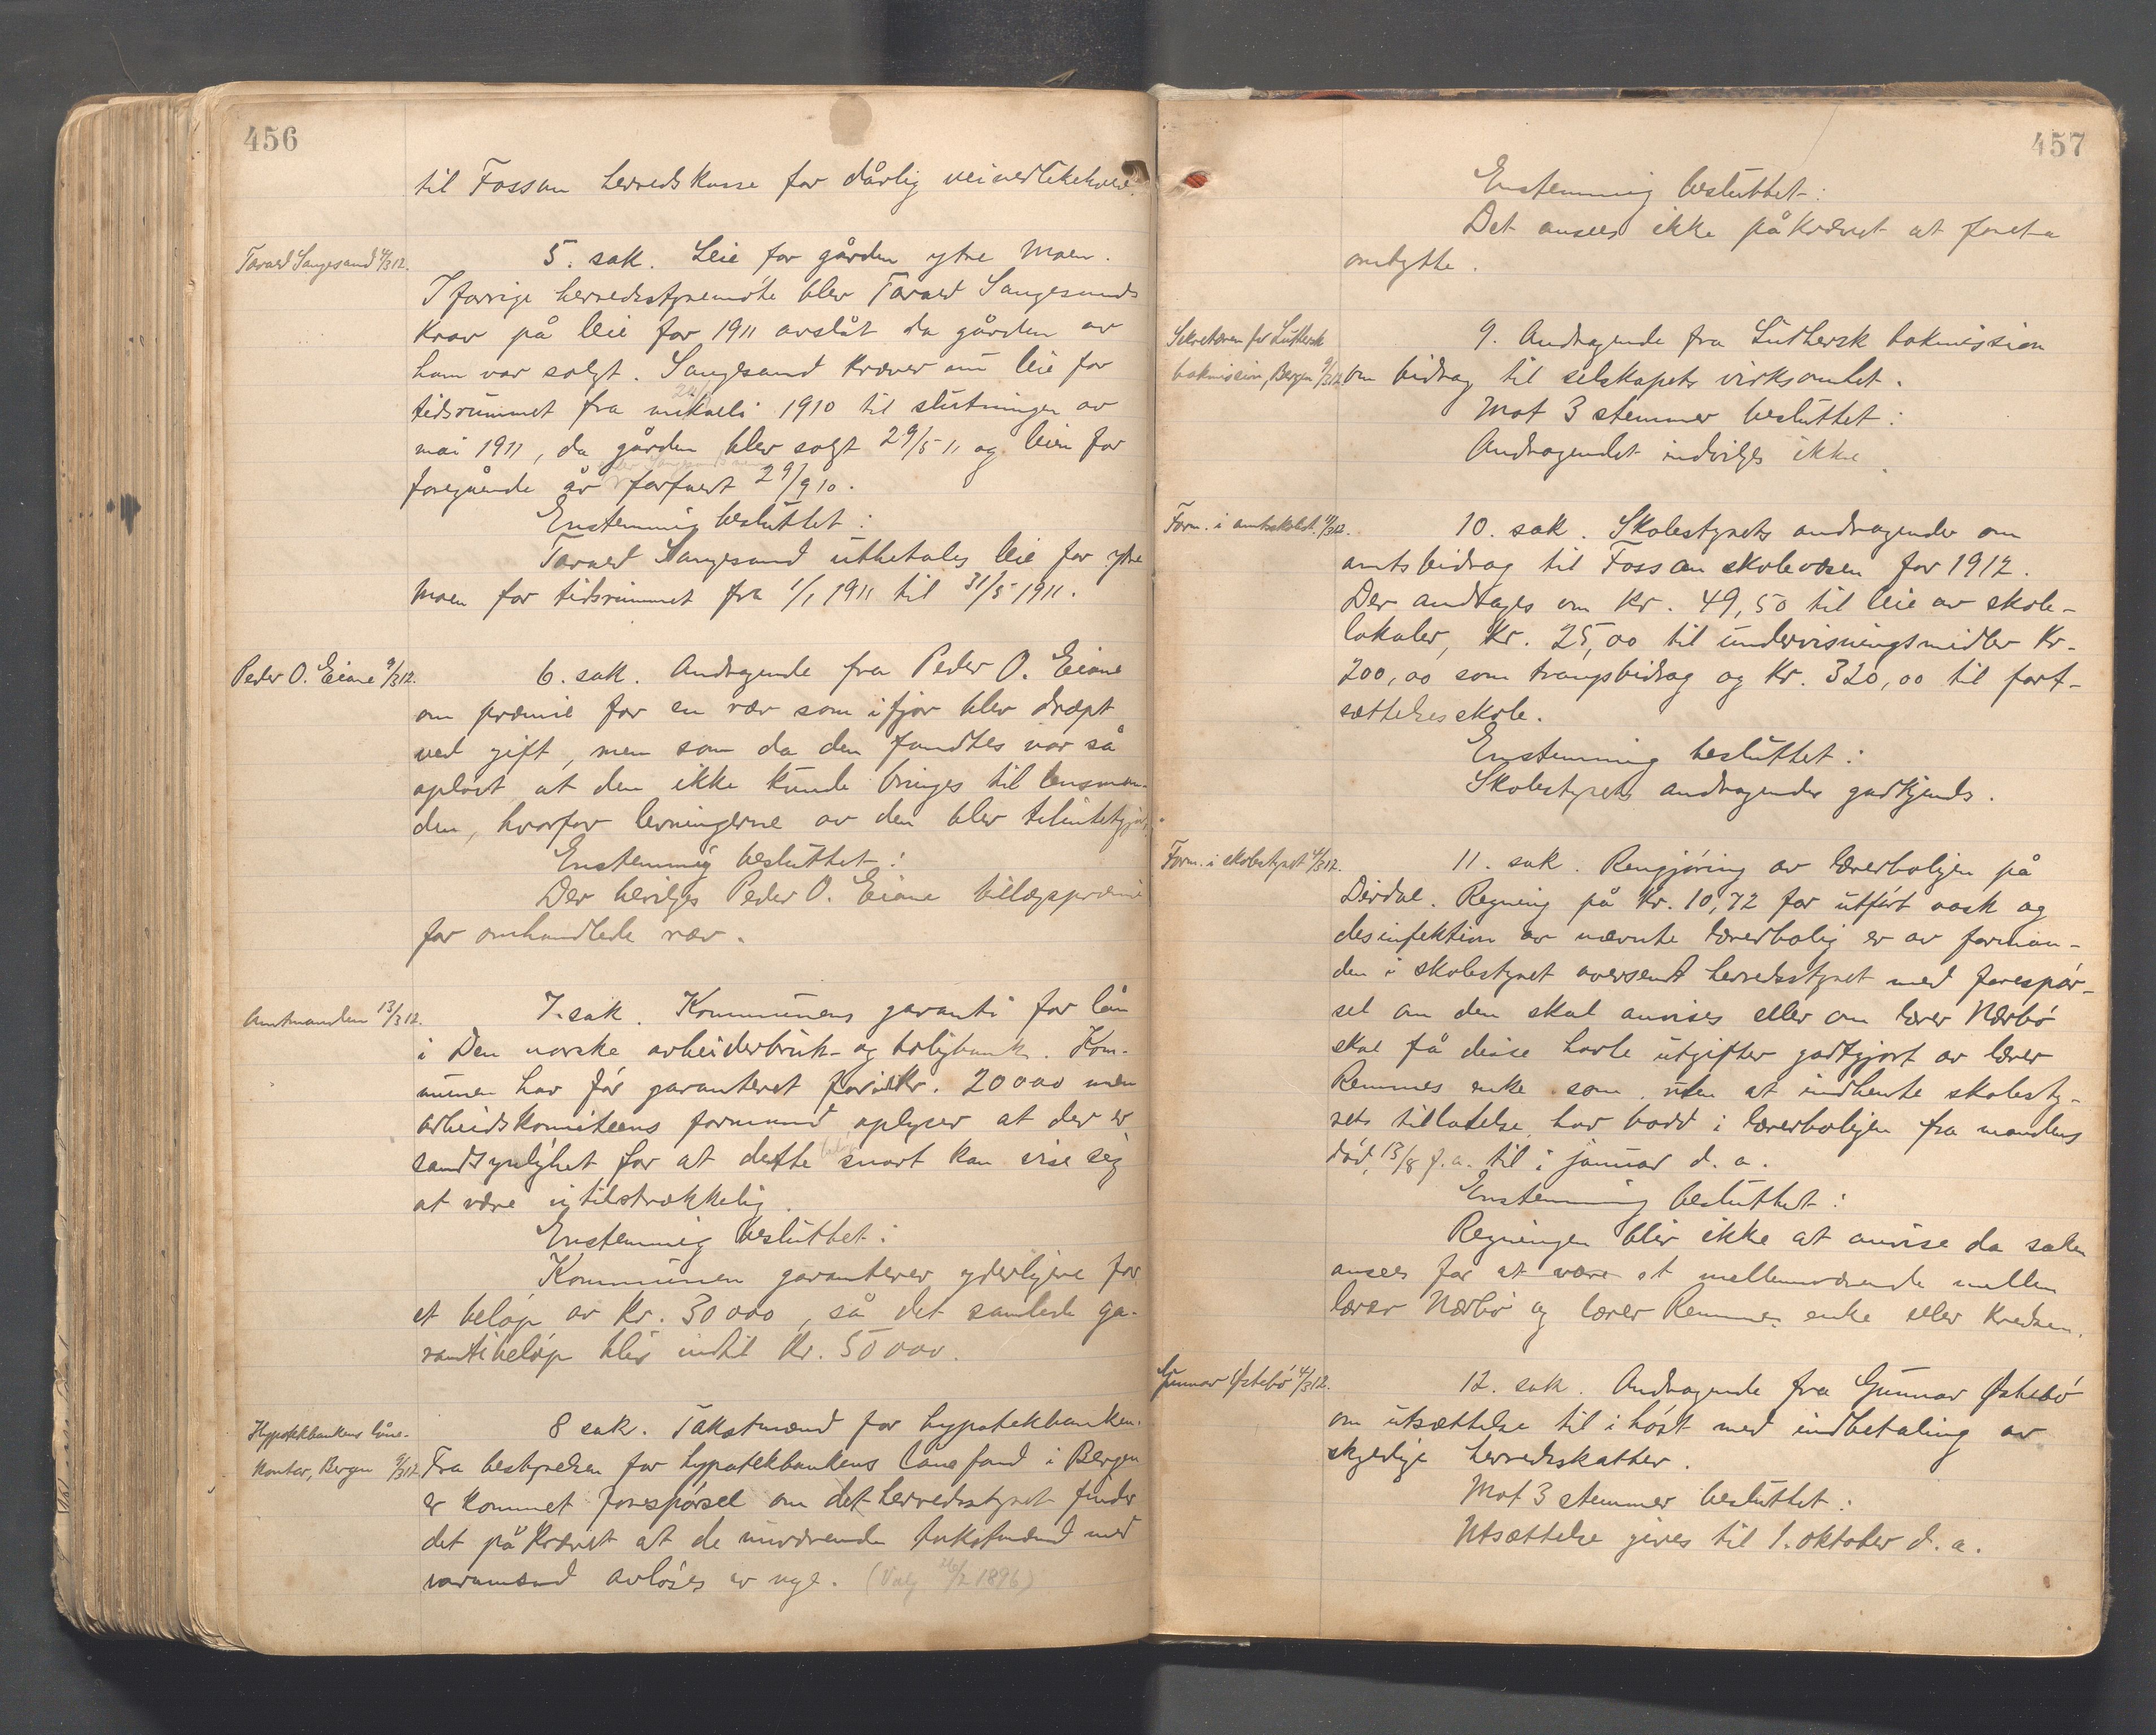 456
til Fossan herredskasse for dårlig veivedlikehold.
Tarald Sangesand 4/3 12.
5. sak. Leie for gården ytre Moen.
I forrige herredsstyremöte blev Tarald Sangesands
krav på leie for 1911 avslåt da gården av
ham var solgt. Sangesand kræver nu leie for
tidsrummet fra mikaeli 1910 til slutningen av
mai 1911, da gården blev solgt 29/5 11 og leien for
foregående år forfaldt 29/9 10.
Enstemmig besluttet:
Tarald Sangesand utbetales leie for ytre
Moen for tidsrummet fra 1/1 1911 til 31/5 1911.
Peder O. Eiane 9/3 12.
6. sak. Andragende fra Peder O. Eiane
om præmie for en ræv som ifjor blev dræpt
ved gift, men som da den fandtes var så
oplöst at den ikke kunde bringes til lensman-
den, hvorfor levningerne av den blev tilintetgjort.
Enstemmig besluttet:
Der bevilges Peder O. Eiane tillægspræmie
for omhandlede ræv.
Amtmanden 13/3 12.
7. sak. Kommunens garanti for lån
i Den norske arbeiderbruk- og boligbank. Kom-
munen har för garanteret for kr. 20000 men
arbeidskomiteens formand oplyser at der er
sandsynlighet for at dette beløp snart kan vise sig
at være utilstrækkelig.
Enstemmig besluttet:
Kommunen garanterer yderligere for
et belöp av kr. 30000, så det samlede ga-
rantibelöp blir indtil kr. 50000.
Hypotekbankens låne-
kontor, Bergen 9/3 12.
8 sak. Takstmænd for hypotekbanken.
Fra bestyrelsen for hypotekbankens lånefond i Bergen
er kommet forespörsel om det herredsstyret finder
det påkrævet at de nuværende takstmænd med
varamænd avlöses av nye. (Valg 26/2 1896)
457
Enstemmig besluttet:
Det ansees ikke påkrævet at foreta
ombytte.
Sekretæren for Luthersk
bokmission, Bergen 9/3 12
9. Andragende fra Luthersk bokmission
om bidrag til selskapets virksomhet.
Mot 3 stemmer besluttet:
Andragendet indvilges ikke.
Form. i amtsskolest. 11/3 12.
10. sak. Skolestyrets andragender om
amtsbidrag til Fossan skolevæsen for 1912.
Der andrages om kr. 49,50 til leie av skole-
lokaler, kr. 25,00 til undervisningsmidler kr.
200,00 som trangsbidrag og kr. 320,00 til fort-
sættelsesskole.
Enstemmig besluttet:
Skolestyrets andragender godkjends.
Form. i skolestyret 4/3 12.
11. sak. Rengjöring av lærerboligen på
Dirdal. Regning på kr. 10,72 for utfört vask og
desinfektion av nævnte lærerbolig er av forman-
den i skolestyret oversendt herredsstyret med forespör-
sel om den skal anvises eller om lærer Nærbö
skal få disse havte utgifter godtgjort av lærer
Remmes enke som, uten at indhente skolesty-
rets tillatelse, har bodd i lærerboligen fra mandens
död, 13/8 f.a. til i januar d. a.
Enstemmig besluttet:
Regningen blir ikke at anvise da saken
ansees for at være et mellemværende mellem
lærer Nærbö og lærer Remmes enke eller kredsen.
Gunnar Østebö 4/3 12.
12. sak. Andragende fra Gunnar Østebö
om utsættelse til i höst med indbetaling av
skyldige herredsskatter.
Mot 3 stemmer besluttet:
Utsættelse gives til 1. oktober d. a.